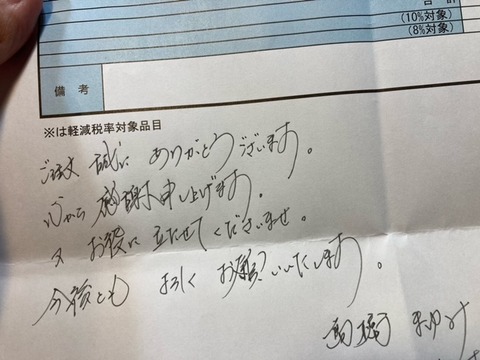 合計
(10%対象)
(8%対象)
備考
※は軽減税率対象品目
ご注文 誠に ありがとうございます。
心から 感謝申し上げます。
又 お役に 立たせてくださいませ。
今後とも 末永く お願いいたします。